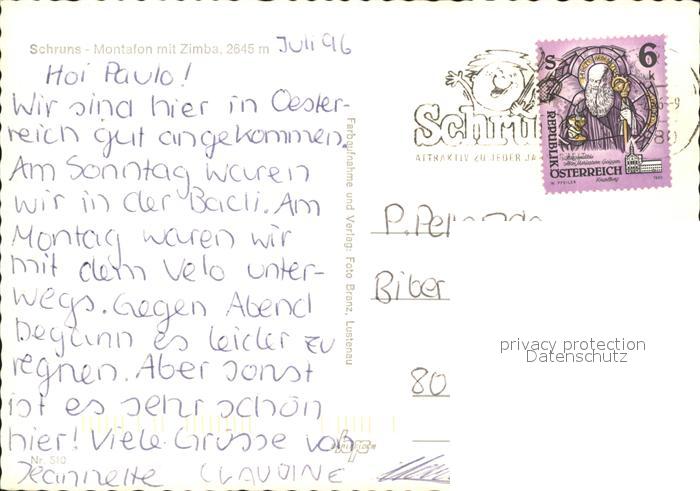 Schruns - Montafon mit Zimba, 2645 m
Juli 96
Hoi Paulo!
Wir sind hier in Oester-
reich gut angekommen.
Am Sonntag waren
wir in der Badi. Am
Montag waren wir
mit dem Velo unter-
wegs. Gegen Abend
begann es leider zu
regnen. Aber sonst
ist es sehr schön
hier! Viele Grüsse von
Jeannette
Nr. 510
Farbaufnahme und Verlag: Foto Branz, Lustenau
Schruns
ATTRAKTIV ZU JEDER JA
6
S
REPUBLIK
ÖSTERREICH
P.
Biber
80
privacy protection
Datenschutz